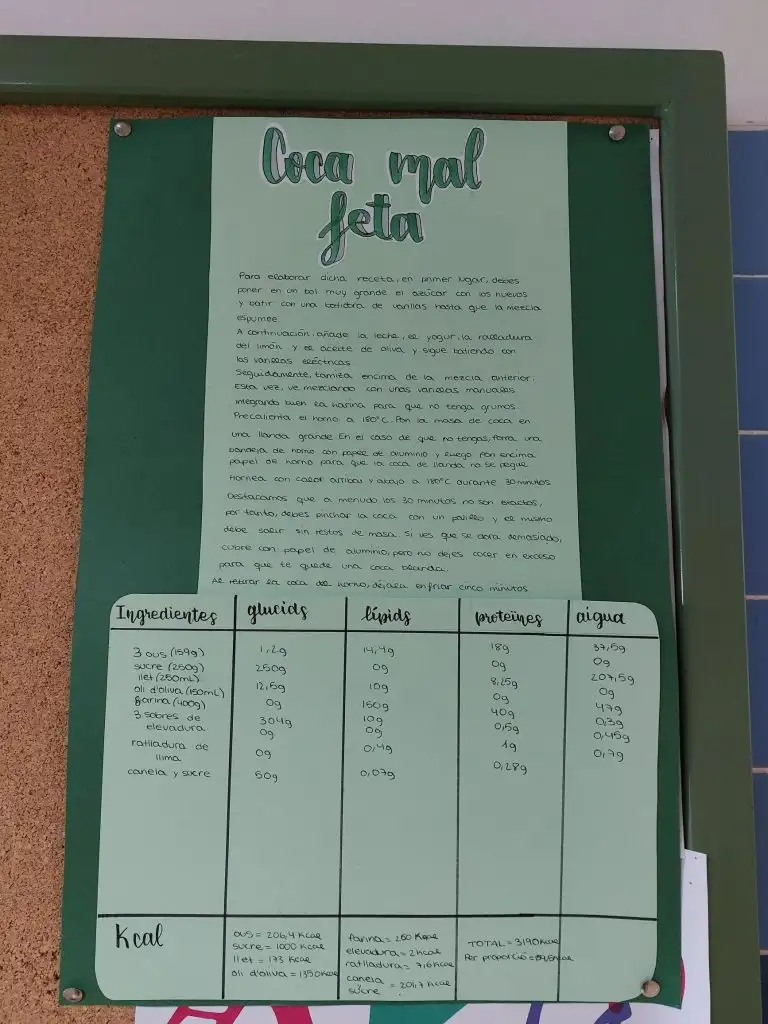 Coca mal
feta
Para elaborar dicha receta, en primer lugar, debes
poner en un bol muy grande el azúcar con los huevos
y batir con una batidora de varillas hasta que la mezcla
espumee.
A continuación, añade la leche, el yogur, la ralladura
del limón y el aceite de oliva y sigue batiendo con
las varillas eléctricas.
Seguidamente, tamiza encima de la mezcla anterior.
Esta vez, ve mezclando con unas varillas manuales
integrando bien la harina para que no tenga grumos.
Precalienta el horno a 180°C. Pon la masa de coca en
una llanda grande. En el caso de que no tengas, forra una
bandeja de horno con papel de aluminio y luego pon encima
papel de horno para que la coca de llanda no se pegue.
Hornea con calor arriba y abajo a 180°C durante 30 minutos
Destacamos que a menudo los 30 minutos no son exactos,
por tanto, debes pinchar la coca con un palillo y el mismo
debe salir sin restos de masa. Si ves que se dora demasiado,
cubre con papel de aluminio, pero no dejes cocer en exceso
para que te quede una coca blanda.
Al retirar la coca del horno, déjala enfriar cinco minutos
Ingredientes glucids lípids proteïnes aigua
3 ous (159g) 1,2g 14,4g 18g 37,5g
sucre (250g) 250g 0g 0g 0g
llet (250mL) 12,5g 10g 8,25g 207,5g
oli d'oliva (150mL) 0g 150g 0g 0g
farina (400g) 304g 10g 40g 47g
3 sobres de
elevadura 0g 0g 0,5g 0,3g
ratlladura de
llima 0g 0,4g 1g 0,45g
canela y sucre 50g 0,07g 0,28g 0,7g
Kcal
ous = 206,4 Kcal
sucre = 1000 Kcal
llet = 173 Kcal
oli d'oliva = 1350Kcal
farina = 250 Kcal
elevadura = 2Kcal
ratlladura = 7,6 Kcal
canela
sucre = 201,7 Kcal
TOTAL = 3190Kcal
Per proporció